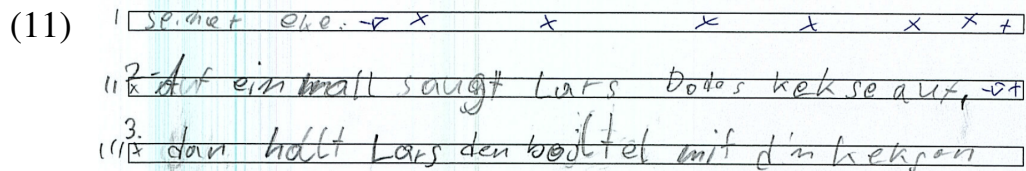 (11) 1 seiner eke. -v x x x x x x +
11 2. x Auf ein mall saugt Lars Dodos kekse auf, -v+
111 3. x dan hallt Lars den bojltel mit d'n keksen